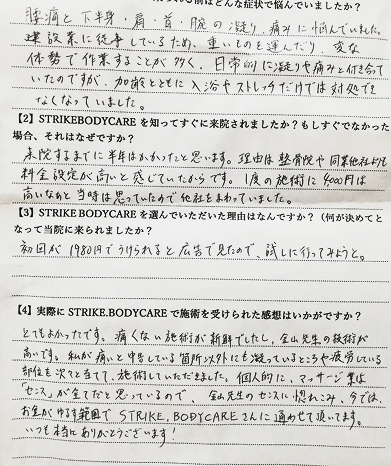 はどんな症状で悩んでいましたか？
腰痛と下半身・肩・首・腕の凝り、痛みに悩んでいました。
建設業に従事しているため、重いものを運んだり、変な
体勢で作業することが多く、日常的に凝りや痛みと付き合って
いたのですが、加齢とともに入浴やストレッチだけでは対処でき
なくなっていました。
【2】STRIKEBODYCAREを知ってすぐに来院されましたか？もしすぐでなかった
場合、それはなぜですか？
来院するまでに半年はかかったと思います。理由は整骨院や同業他社よりも
料金設定が高いと感じていたからです。1度の施術に4000円は
高いなぁと当時は思っていたので他社をまわっていました。
【3】STRIKEBODYCAREを選んでいただいた理由はなんですか？（何が決めてと
なって当院に来られましたか？
初回が1980円でうけられると広告で見たので、試しに行ってみようと。
【4】実際にSTRIKE.BODYCAREで施術を受けられた感想はいかがですか？
とてもよかったです。痛くない施術が新鮮でしたし、金山先生の技術が
高いです。私が痛いと申告している箇所以外にも凝っているところや疲労している
部位を次々と当て、施術していただきました。個人的に、マッサージ業は
「センス」が全てだと思っているので、金山先生のセンスに惚れこみ、今では、
お金がゆるす範囲でSTRIKE.BODYCAREさんに通わせて頂いてます。
いつも本当にありがとうございます！